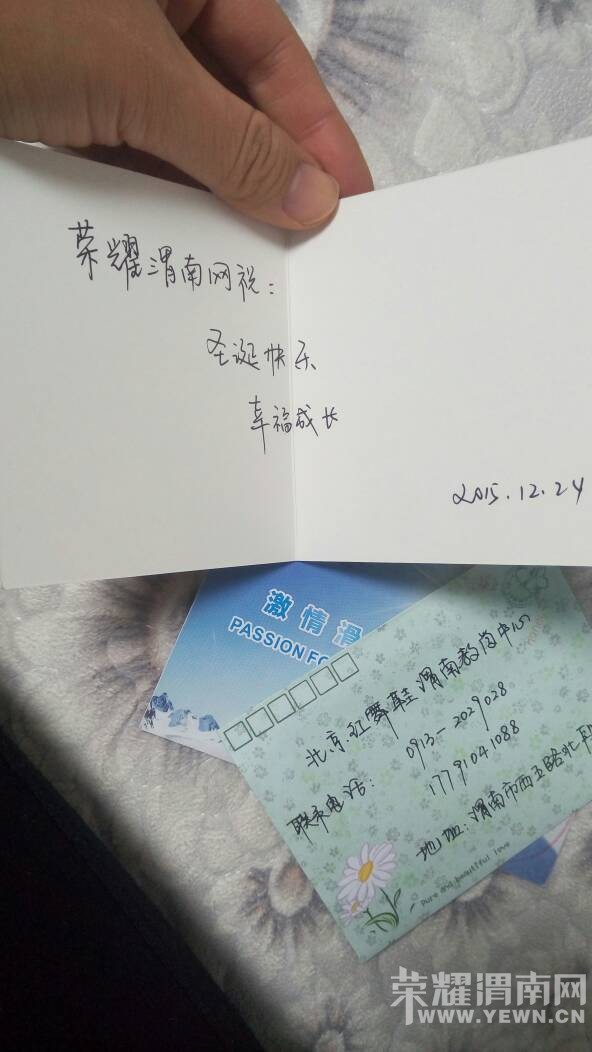 荣耀渭南网祝：
圣诞快乐
幸福成长
2015.12.24
激情滑
PASSION FO
北京红舞鞋渭南教学中心
联系电话：0913-2029028
17791041088
地址：渭南市西五路北段
Pure and beautiful love
荣耀渭南网
WWW.YEWN.CN